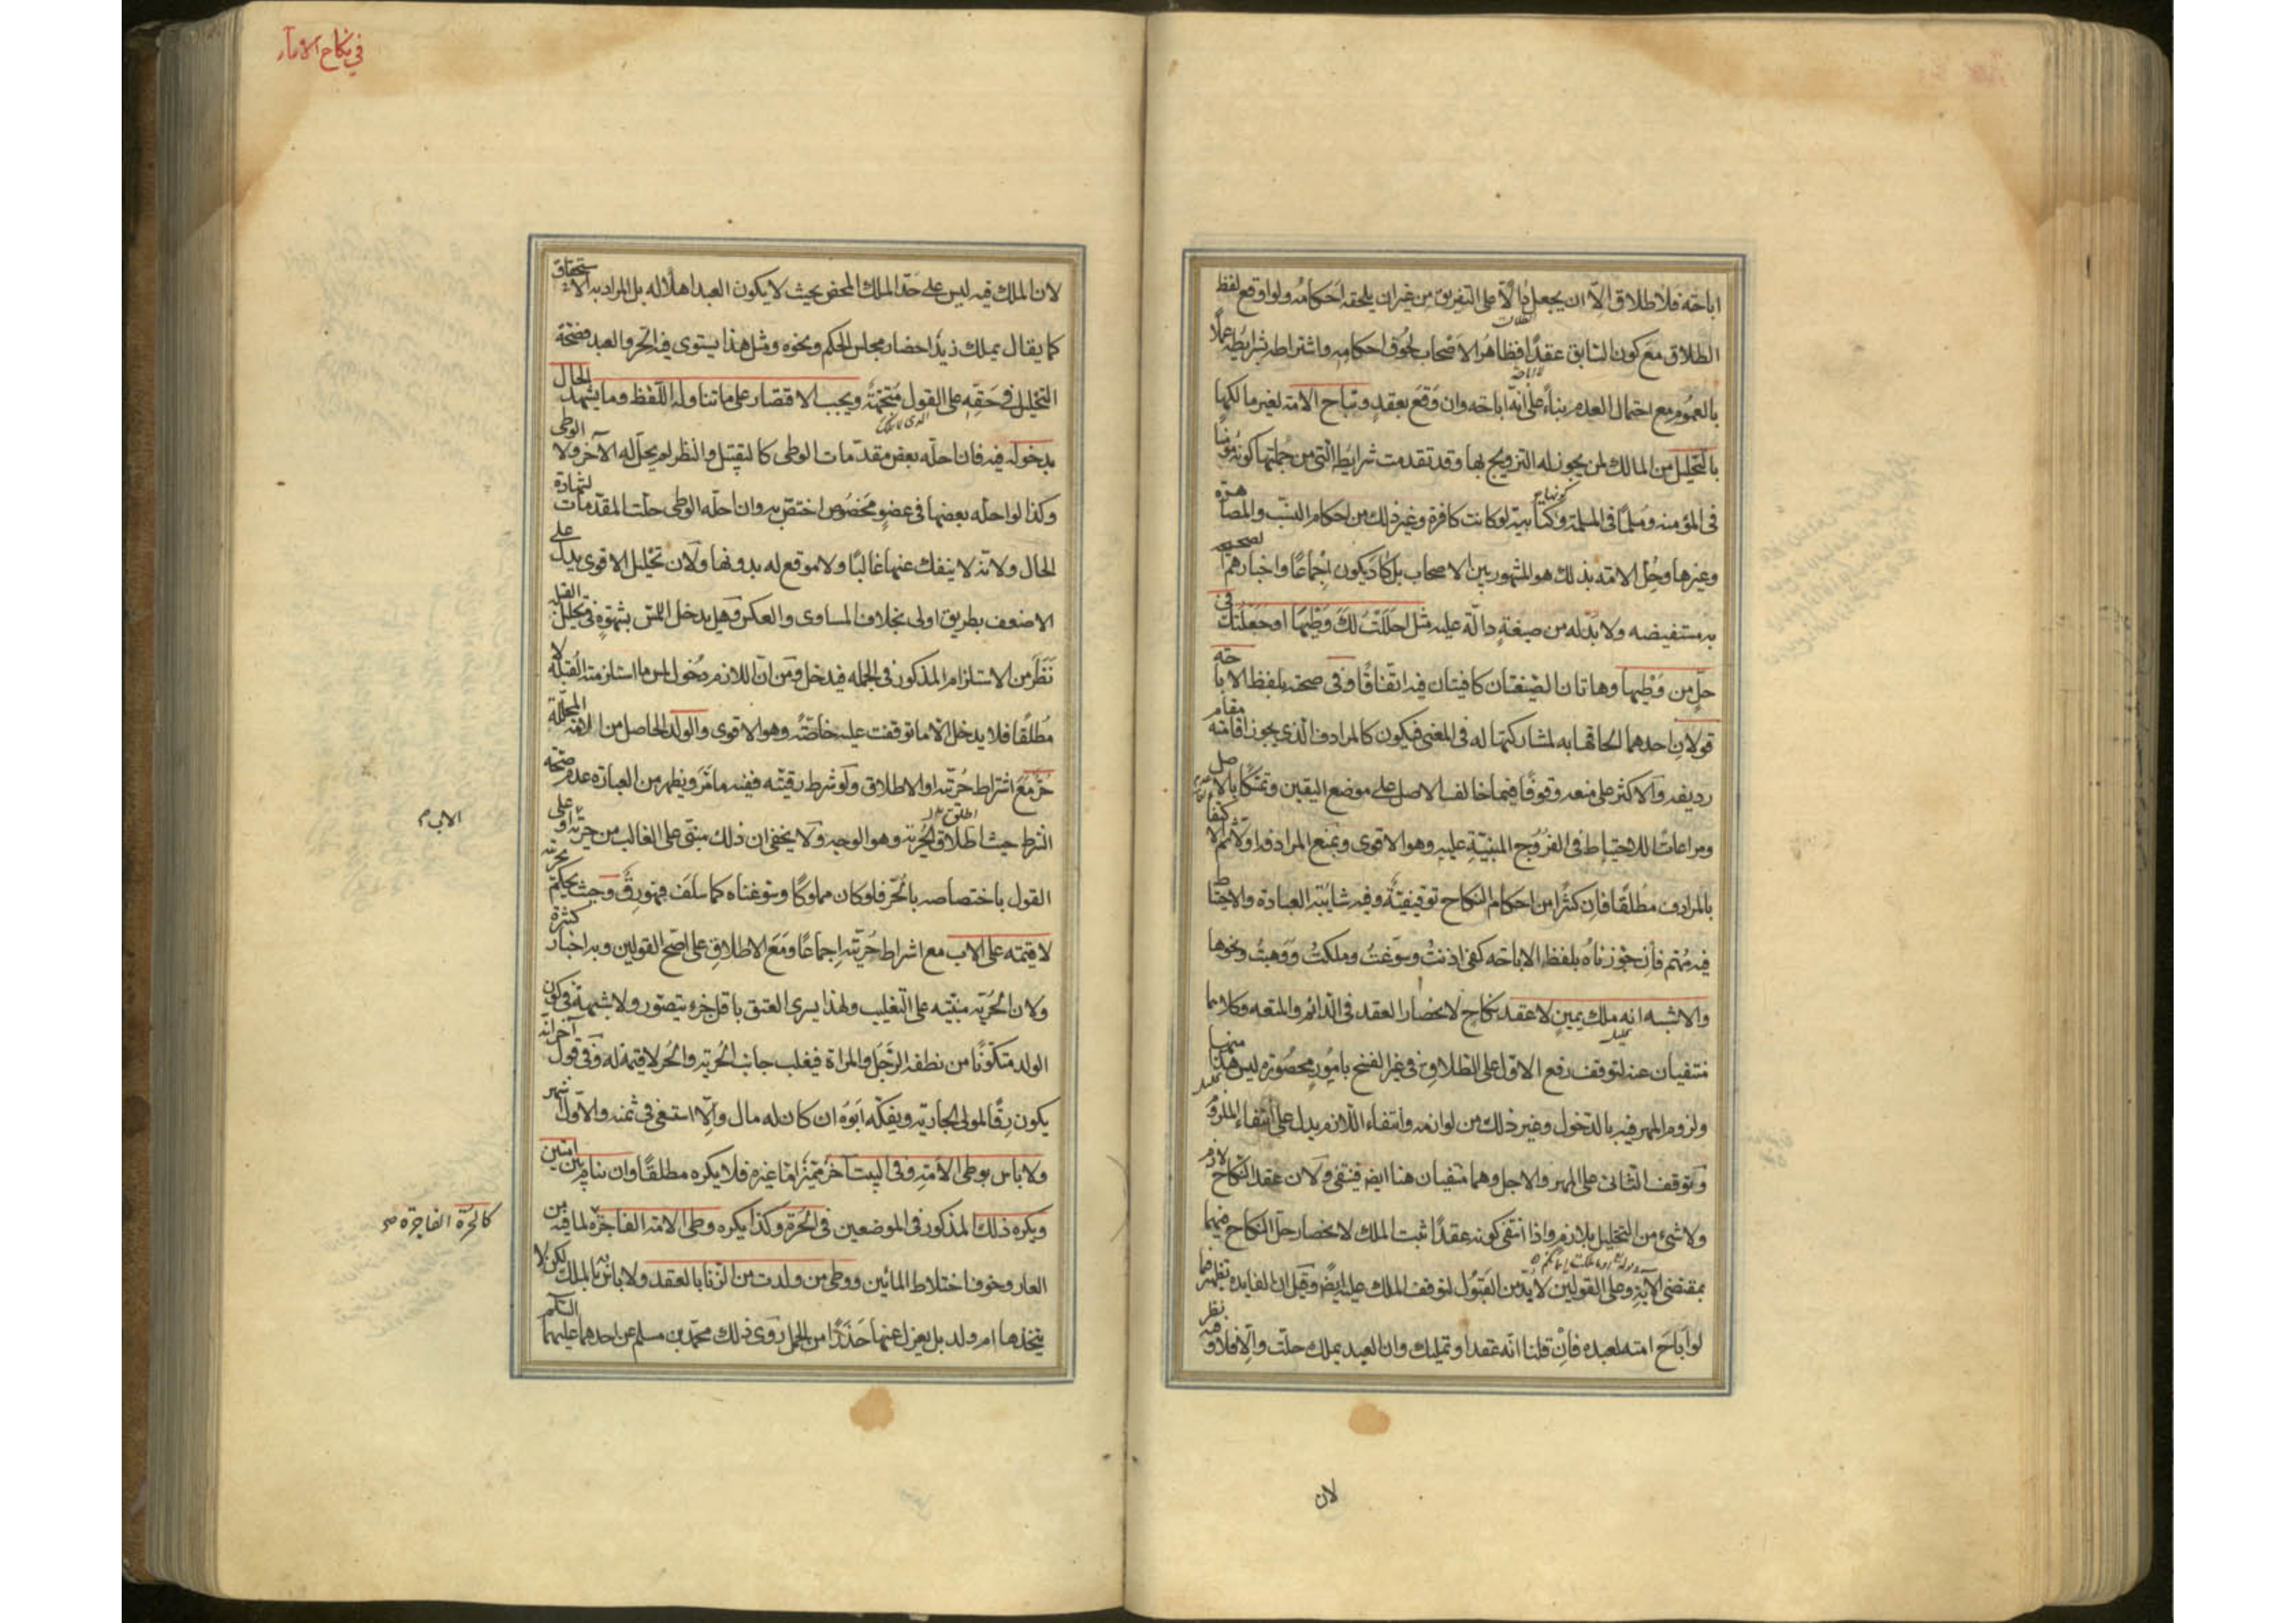 اباحة فلا طلاق الا ان يجعل دالا على التفريق من غير ان يلحقه احكامه ولو اوقع لفظ
الطلاق مع كون السابق عقدا فظاهر الاصحاب لحوق احكامه واشتراطه بشرايطه عملا
بالعموم مع احتمال العدم بناء على انه اباحة وان وقع بعقد وتباح الامة لغير مالكها
بالتحليل من المالك لمن يجوز له التزويج بها وقد تقدمت شرايطه التي من جملتها كونه مؤمنا
في المؤمنة ومسلما في المسلمة وكونها كتابية لو كانت كافرة وغير ذلك من احكام النسب والمصاهرة
وغيرها وحل الامة بذلك هو المشهور بين الاصحاب بل كاد يكون اجماعا واخبارهم الصحيحة
به مستفيضه ولا بد له من صيغة دالة عليه مثل احللت لك وطيها او جعلتك في
حل من وطيها وهاتان الصيغتان كافيتان فيه اتفاقا وفي صحته بلفظ الاباحة
قولان احدهما الحاقها به لمشاركتها له في المعنى فيكون كالمرادف الذي يجوز اقامته مقام
رديفه والاكثر على منعه وقوفا فيما خالف الاصل على موضع اليقين وتمسكا بالاصل
ومراعات للاحتياط في الفروج المبنية عليه وهو الاقوى ونمنع المرادفة اولا ثم الاكتفا
بالمرادف مطلقا فان كثرا من احكام النكاح توقيفية وفيه شايبة العبادة والاحتياط
فيه مهم فان جوزناه بلفظ الاباحة كفى اذنت وسوغت وملكت ووهبت ونحوها
والاشبه انه ملك يمين لا عقد نكاح لانحصار العقد في الدائم والمتعه وكلاهما
منتفيان عنه لتوقف رفع الاول على الطلاق في غير الفسخ بامور محصورة ليس هذا منها
ولزوم المهر فيه بالدخول وغير ذلك من لوازمه وانتفاء اللازم يدل على انتفاء الملزوم
وتوقف الثاني على المهر والاجل وهما منتفيان هنا ايض فينتفى ولان عقد النكاح لازم
ولا شيء من التحليل بلازم واذا انتفى كونه عقدا ثبت الملك لانحصار حل النكاح فيهما
بمقتضى الآية وعلى القولين لا بد من القبول لتوقف الملك عليه ايض وقيل ان الفايده تظهر فيما
لو اباح امته لعبده فان قلنا انه عقد او تمليك وان العبد يملك حلت والا فلا وفيه نظر
لان
في نكاح الاماء
لان الملك فيه ليس على حد الملك المحض بحيث لا يكون العبد اهلا له بل المراد به الاستحقاق
كما يقال يملك زيد احضار مجلس الحكم ونحوه ومثل هذا يستوي فيه الحر والعبد فصحة
التحليل في حقه على القول متجهة ويجب الاقتصار على ما تناوله اللفظ وما يشهد الحال
بدخوله فيه فان احله بعض مقدمات الوطى كالتقبيل والنظر لم يحل له الآخر ولا الوطى
وكذا لو احله بعضها في عضو مخصوص اختص به وان احله الوطى حلت المقدمات لشهادة
الحال ولانه لا ينفك عنها غالبا ولا موقع له بدونها ولان تحليل الاقوى يدل على
الاضعف بطريق اولى بخلاف المساوى والعكس وهل يدخل اللمس بشهوة في تحليل القبلة
نظر من الاستلزام المذكور في الجملة فيدخل ومن ان اللازم دخول لمس ما استلزمته القبلة لا
مطلقا فلا يدخل الا ما توقفت عليه خاصة وهو الاقوى والولد الحاصل من الامة المحللة
حر مع اشتراط حريته او الاطلاق ولو شرط رقيته ففيه ما مر ويظهر من العبارة عدم صحة
الشرط حيث اطلق الحرية وهو الوجيه ولا يخفى ان ذلك مبنى على الغالب من حرية او على
الاب م
القول باختصاصه بالحر فلو كان مملوكا وسوغناه كما سلف فهو رق وحيث يحكم بحريته
لا قيمة على الاب مع اشراط حريته اجماعا ومع الاطلاق على اصح القولين وبه اخبار كثيرة
ولان الحرية مبنية على التغليب ولهذا يسرى العتق باقل جزء يتصور ولا شبهة في كون
الولد متكونا من نطفة الرجل والمراة فيغلب جانب الحرية والحر لا قيمة له وفي قول آخر انه
يكون رقا لمولى الجارية ويفكه ابوه ان كان له مال والا استسعى في ثمنه والاول اشهر
ولا باس بوطى الامة وفي البيت آخر مميز اما غيره فلا يكره مطلقا وان ينام بين امتين
ويكره ذلك المذكور في الموضعين في الحرة وكذا يكره وطى الامة الفاجرة لما فيه من
كالحرة الفاجرة صح
العار وخوف اختلاط المائين ووطى من ولدت من الزنا بالعقد ولا باس به بالملك لكن لا
يتخذها ام ولد بل يعزل عنها حذرا من الحمل روى ذلك محمد بن مسلم عن احدهما عليهما السلم